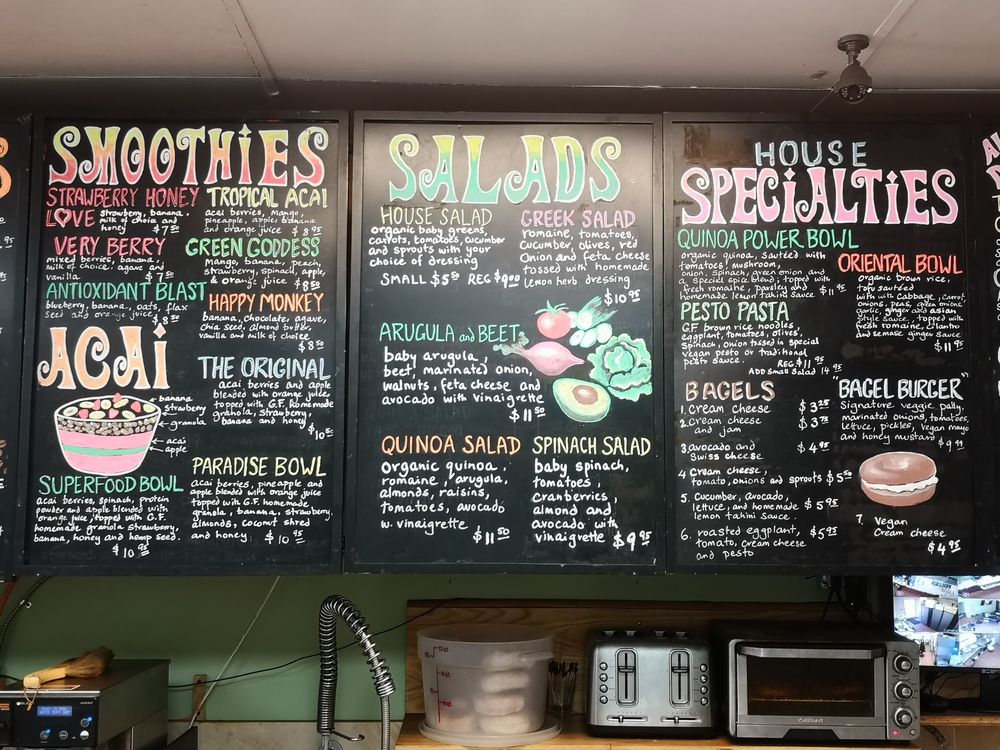 SMOOTHIES
STRAWBERRY HONEY
LOVE strawberry, banana,
milk of choice and
honey $7 50
TROPICAL ACAI
acai berries, mango,
pineapple, apple, banana
and orange juice $8 95
VERY BERRY
mixed berries, banana,
milk of choice, agave and
vanilla $7 50
GREEN GODDESS
Mango, banana, peach,
strawberry, spinach, apple,
& orange juice $8 50
ANTIOXIDANT BLAST
blueberry, banana, oats, flax
seed and orange juice $8 50
HAPPY MONKEY
banana, chocolate, agave,
chia seed, almond butter,
vanilla and milk of choice
$8 50
ACAi
banana
strawberry
granola
acai
apple
THE ORIGINAL
acai berries and apple
blended with orange juice
topped with G.F. homemade
granola, strawberry,
banana and honey
$10 50
SUPERFOOD BOWL
acai berries, spinach, protein
powder and apple blended with
orange juice, topped with G.F.
homemade granola strawberry,
banana, honey and hemp seed.
$10 95
PARADISE BOWL
acai berries, pineapple and
apple blended with orange juice
topped with G.F. homemade
granola, banana, strawberry,
almonds, coconut shred
and honey. $10 95
SALADS
HOUSE SALAD
organic baby greens,
carrots, tomatoes, cucumber
and sprouts with your
choice of dressing
SMALL $5 50 REG $9 00
GREEK SALAD
romaine, tomatoes,
cucumber, olives, red
onion and feta cheese
tossed with homemade
lemon herb dressing
$10 95
ARUGULA and BEET
baby arugula,
beet, marinated onion,
walnuts, feta cheese and
avocado with vinaigrette
$11 50
QUINOA SALAD
organic quinoa,
romaine, arugula,
almonds, raisins,
tomatoes, avocado
w. vinaigrette
$11 50
SPINACH SALAD
baby spinach,
tomatoes,
cranberries,
almond and
avocado with
vinaigrette $9 95
HOUSE
SPECiALTiES
QUINOA POWER BOWL
organic quinoa, sauteed with
tomatoes, mushroom,
onion, spinach, green onion and
a special spice blend, topped with
fresh romaine, parsley and
homemade lemon tahini sauce $11 95
ORIENTAL BOWL
organic brown rice,
tofu sauteed
with cabbage, carrot,
onions, peas, green onions,
garlic, ginger and asian
style sauce, topped with
fresh romaine, cilantro
and sesame ginger sauce
$11 95
PESTO PASTA
G.F. brown rice noodles,
eggplant, tomatoes, olives,
spinach, onion tossed in special
vegan pesto or traditional
pesto sauce.
REG. $11 95
ADD small Salad 14 95
BAGELS
1. cream cheese $3 25
2. cream cheese
and jam $3 75
3. avocado and
Swiss cheese $4 95
4 cream cheese,
tomato, onions and sprouts $5 50
5. cucumber, avocado,
lettuce, and homemade
lemon tahini sauce. $5 95
6. roasted eggplant,
tomato, cream cheese
and pesto $5 95
"BAGEL BURGER"
Signature veggie patty,
marinated onions, tomatoes,
lettuce, pickles, vegan mayo
and honey mustard $9 99
7. Vegan
cream cheese
$4 95
Cuisinart